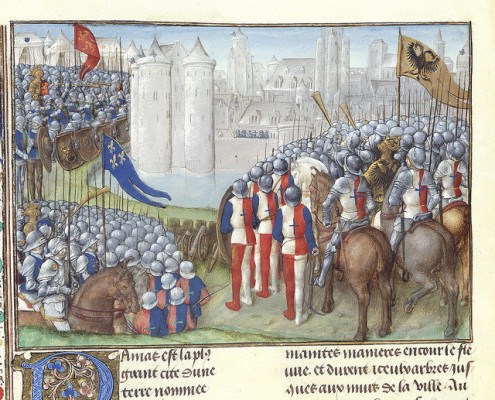 Damas est la plꝰ
grant cite dune
terre nommee
maintes manieres entour le fle
uue. et durent iceulx arbres Jus
ques aux murs de la ville. Au